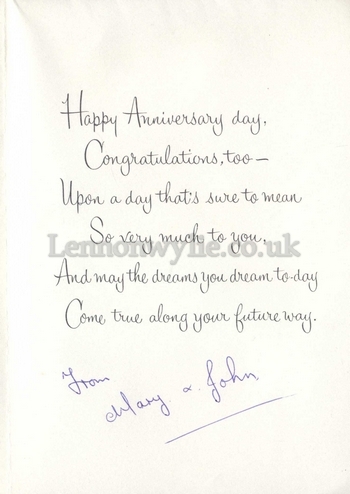 Happy Anniversary day,
Congratulations, too—
Upon a day that's sure to mean
So very much to you,
Lennonwylie.co.uk
And may the dreams you dream to-day
Come true along your future way.
From
Mary & John